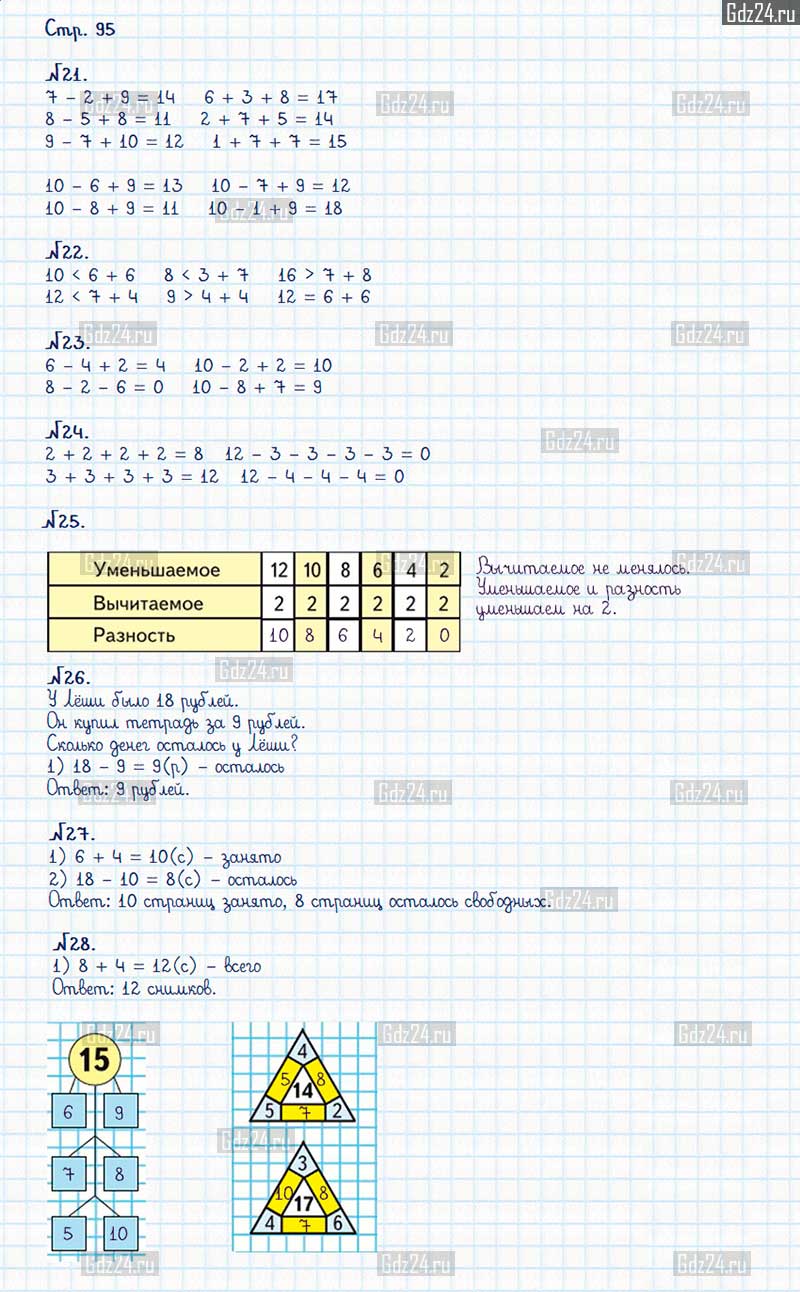 Gdz24.ru
Стр. 95
№21.
7 - 2 + 9 = 14 6 + 3 + 8 = 17
8 - 5 + 8 = 11 2 + 7 + 5 = 14
9 - 7 + 10 = 12 1 + 7 + 7 = 15
10 - 6 + 9 = 13 10 - 7 + 9 = 12
10 - 8 + 9 = 11 10 - 1 + 9 = 18
№22.
10 < 6 + 6 8 < 3 + 7 16 > 7 + 8
12 < 7 + 4 9 > 4 + 4 12 = 6 + 6
№23.
6 - 4 + 2 = 4 10 - 2 + 2 = 10
8 - 2 - 6 = 0 10 - 8 + 7 = 9
№24.
2 + 2 + 2 + 2 = 8 12 - 3 - 3 - 3 - 3 = 0
3 + 3 + 3 + 3 = 12 12 - 4 - 4 - 4 = 0
№25.
Уменьшаемое 12 10 8 6 4 2
Вычитаемое 2 2 2 2 2 2
Разность 10 8 6 4 2 0
Вычитаемое не менялось.
Уменьшаемое и разность
уменьшаем на 2.
№26.
У Лёши было 18 рублей.
Он купил тетрадь за 9 рублей.
Сколько денег осталось у Лёши?
1) 18 - 9 = 9(р) - осталось
Ответ: 9 рублей.
№27.
1) 6 + 4 = 10(с) - занято
2) 18 - 10 = 8(с) - осталось
Ответ: 10 страниц занято, 8 страниц осталось свободных.
№28.
1) 8 + 4 = 12(с) - всего
Ответ: 12 снимков.
15
6 9
7 8
5 10
4
5 8
14
5 7 2
3
10 8
17
4 7 6